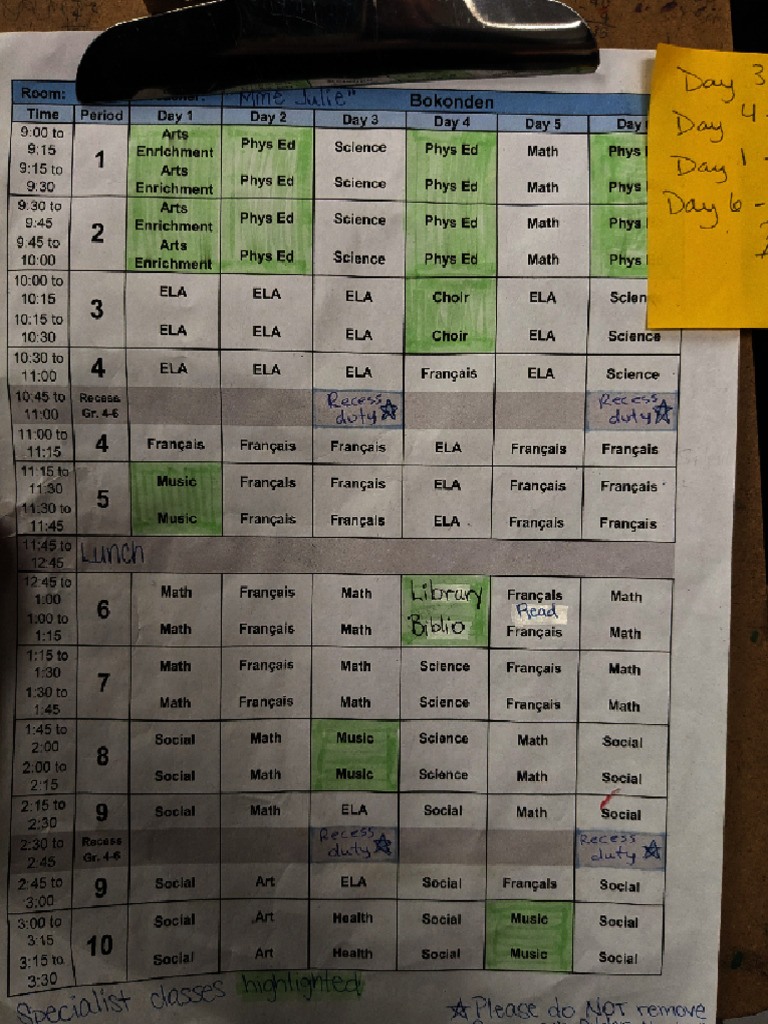 Room: Mme Julie" Bokonden
Time Period Day 1 Day 2 Day 3 Day 4 Day 5 Day
9:00 to 9:15 1 Arts Enrichment Phys Ed Science Phys Ed Math Phys
9:15 to 9:30 Arts Enrichment Phys Ed Science Phys Ed Math Phys
9:30 to 9:45 2 Arts Enrichment Phys Ed Science Phys Ed Math Phys
9:45 to 10:00 Arts Enrichment Phys Ed Science Phys Ed Math Phys
10:00 to 10:15 3 ELA ELA ELA Choir ELA Scien
10:15 to 10:30 ELA ELA ELA Choir ELA Science
10:30 to 11:00 4 ELA ELA ELA Français ELA Science
10:45 to 11:00 Recess Gr. 4-6 Recess duty ☆ Recess duty ☆
11:00 to 11:15 4 Français Français Français ELA Français Français
11:15 to 11:30 5 Music Français Français ELA Français Français
11:30 to 11:45 Music Français Français ELA Français Français
11:45 to 12:45 Lunch
12:45 to 1:00 6 Math Français Math Library Français Math
Read
1:00 to 1:15 Math Français Math Biblio Français Math
1:15 to 1:30 7 Math Français Math Science Français Math
1:30 to 1:45 Math Français Math Science Français Math
1:45 to 2:00 8 Social Math Music Science Math Social
2:00 to 2:15 Social Math Music Science Math Social
2:15 to 2:30 9 Social Math ELA Social Math Social
2:30 to 2:45 Recess Gr. 4-6 Recess duty ☆ Recess duty ☆
2:45 to 3:00 9 Social Art ELA Social Français Social
3:00 to 3:15 10 Social Art Health Social Music Social
3:15 to 3:30 Social Art Health Social Music Social
Specialist classes highlighted
☆ Please do NOT remove
Day 3
Day 4 -
Day 1 -
Day 6 -